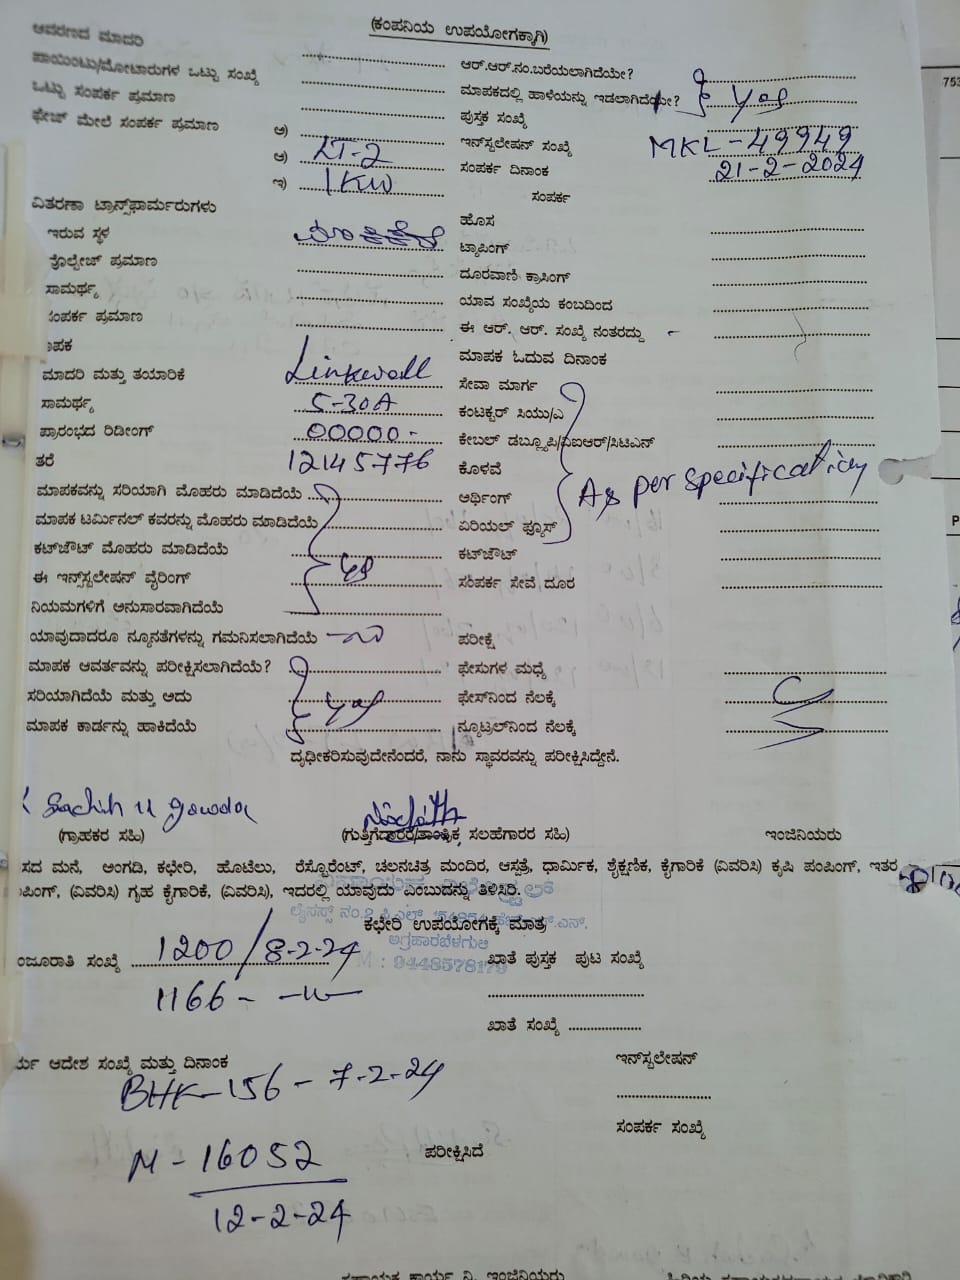 (ಕಂಪನಿಯ ಉಪಯೋಗಕ್ಕಾಗಿ)
ಆವರಣದ ಮಾದರಿ
ಪಾಯಿಂಟು/ಮೋಟಾರುಗಳ ಒಟ್ಟು ಸಂಖ್ಯೆ
ಒಟ್ಟು ಸಂಪರ್ಕ ಪ್ರಮಾಣ
ಫೇಜ್ ಮೇಲೆ ಸಂಪರ್ಕ ಪ್ರಮಾಣ
ಅ)
ಆ) LT-2
ಇ) 1KW
ವಿತರಣಾ ಟ್ರಾನ್ಸ್‌ಫಾರ್ಮರುಗಳು
ಇರುವ ಸ್ಥಳ
ವೊಲ್ಟೇಜ್ ಪ್ರಮಾಣ
ಸಾಮರ್ಥ್ಯ
ಸಂಪರ್ಕ ಪ್ರಮಾಣ
ಮಾದರಿ ಮತ್ತು ತಯಾರಿಕೆ Linkwell
ಸಾಮರ್ಥ್ಯ 5-30A
ಪ್ರಾರಂಭದ ರಿಡೀಂಗ್ 00000-
ತರೆ 12145776
ಮಾಪಕವನ್ನು ಸರಿಯಾಗಿ ಮೊಹರು ಮಾಡಿದೆಯೆ
ಮಾಪಕ ಟರ್ಮಿನಲ್ ಕವರನ್ನು ಮೊಹರು ಮಾಡಿದೆಯೆ
ಕಟ್‌ಔಟ್ ಮೊಹರು ಮಾಡಿದೆಯೆ
ಈ ಇನ್ಸ್‌ಸ್ಟಲೇಷನ್ ವೈರಿಂಗ್
ನಿಯಮಗಳಿಗೆ ಅನುಸಾರವಾಗಿದೆಯೆ
ಯಾವುದಾದರೂ ನ್ಯೂನತೆಗಳನ್ನು ಗಮನಿಸಲಾಗಿದೆಯೆ
ಮಾಪಕ ಆವರ್ತವನ್ನು ಪರೀಕ್ಷಿಸಲಾಗಿದೆಯೆ?
ಸರಿಯಾಗಿದೆಯೆ ಮತ್ತು ಅದು yes
ಮಾಪಕ ಕಾರ್ಡನ್ನು ಹಾಕಿದೆಯೆ
ಆರ್.ಆರ್.ನಂ.ಬರೆಯಲಾಗಿದೆಯೇ?
ಮಾಪಕದಲ್ಲಿ ಹಾಳೆಯನ್ನು ಇಡಲಾಗಿದೆಯೇ? yes
ಪುಸ್ತಕ ಸಂಖ್ಯೆ
ಇನ್‌ಸ್ಟಲೇಷನ್ ಸಂಖ್ಯೆ MKL-49949
ಸಂಪರ್ಕ ದಿನಾಂಕ 21-2-2024
ಸಂಪರ್ಕ
ಹೊಸ
ಟ್ಯಾಪಿಂಗ್
ದೂರವಾಣಿ ಕ್ರಾಸಿಂಗ್
ಯಾವ ಸಂಖ್ಯೆಯ ಕಂಬದಿಂದ
ಈ ಆರ್. ಆರ್. ಸಂಖ್ಯೆ ನಂತರದ್ದು
ಮಾಪಕ ಓದುವ ದಿನಾಂಕ
ಸೇವಾ ಮಾರ್ಗ
ಕಂಟಕ್ಟರ್ ಸಿಯು/ಎ
ಕೇಬಲ್ ಡಬ್ಲ್ಯೂಪಿ/ವಿಐಆರ್/ಸಿಟಿಎನ್
ಕೊಳವೆ
As per specification
ಅರ್ಥಿಂಗ್
ಏರಿಯಲ್ ಫ್ಯೂಸ್
ಕಟ್‌ಔಟ್
ಸಂಪರ್ಕ ಸೇವೆ ದೂರ
ಪರೀಕ್ಷೆ
ಫೇಸುಗಳ ಮಧ್ಯೆ
ಫೇಸ್‌ನಿಂದ ನೆಲಕ್ಕೆ
ನ್ಯೂಟ್ರಲ್‌ನಿಂದ ನೆಲಕ್ಕೆ
ದೃಢೀಕರಿಸುವುದೇನೆಂದರೆ, ನಾನು ಸ್ಥಾವರವನ್ನು ಪರೀಕ್ಷಿಸಿದ್ದೇನೆ.
Sachin U Gowda
(ಗ್ರಾಹಕರ ಸಹಿ) (ಗುತ್ತಿಗೆದಾರರ/ತಾಂತ್ರಿಕ ಸಲಹೆಗಾರರ ಸಹಿ) ಇಂಜಿನಿಯರು
ಸದ ಮನೆ, ಅಂಗಡಿ, ಕಛೇರಿ, ಹೊಟೇಲು, ರೆಸ್ಟೋರೆಂಟ್, ಚಲನಚಿತ್ರ ಮಂದಿರ, ಆಸ್ಪತ್ರೆ, ಧಾರ್ಮಿಕ, ಶೈಕ್ಷಣಿಕ, ಕೈಗಾರಿಕೆ (ವಿವರಿಸಿ) ಕೃಷಿ ಪಂಪಿಂಗ್, ಇತರ
ಪಿಂಗ್, (ವಿವರಿಸಿ) ಗೃಹ ಕೈಗಾರಿಕೆ, (ವಿವರಿಸಿ), ಇದರಲ್ಲಿ ಯಾವುದು ಎಂಬುದನ್ನು ತಿಳಿಸಿರಿ.
ಕಛೇರಿ ಉಪಯೋಗಕ್ಕೆ ಮಾತ್ರ
ಅಗ್ರಹಾರಬೆಳಗುಲಿ
M : 9448578179
ಂಜೂರಾತಿ ಸಂಖ್ಯೆ 1200/8-2-24
1166- -11-
ಖಾತೆ ಪುಸ್ತಕ ಪುಟ ಸಂಖ್ಯೆ
ಖಾತೆ ಸಂಖ್ಯೆ
ರ್ಯ ಆದೇಶ ಸಂಖ್ಯೆ ಮತ್ತು ದಿನಾಂಕ
BHK-156-7-2-24
ಇನ್‌ಸ್ಟಲೇಷನ್
ಸಂಪರ್ಕ ಸಂಖ್ಯೆ
ಪರೀಕ್ಷಿಸಿದೆ
M-16052
12-2-24